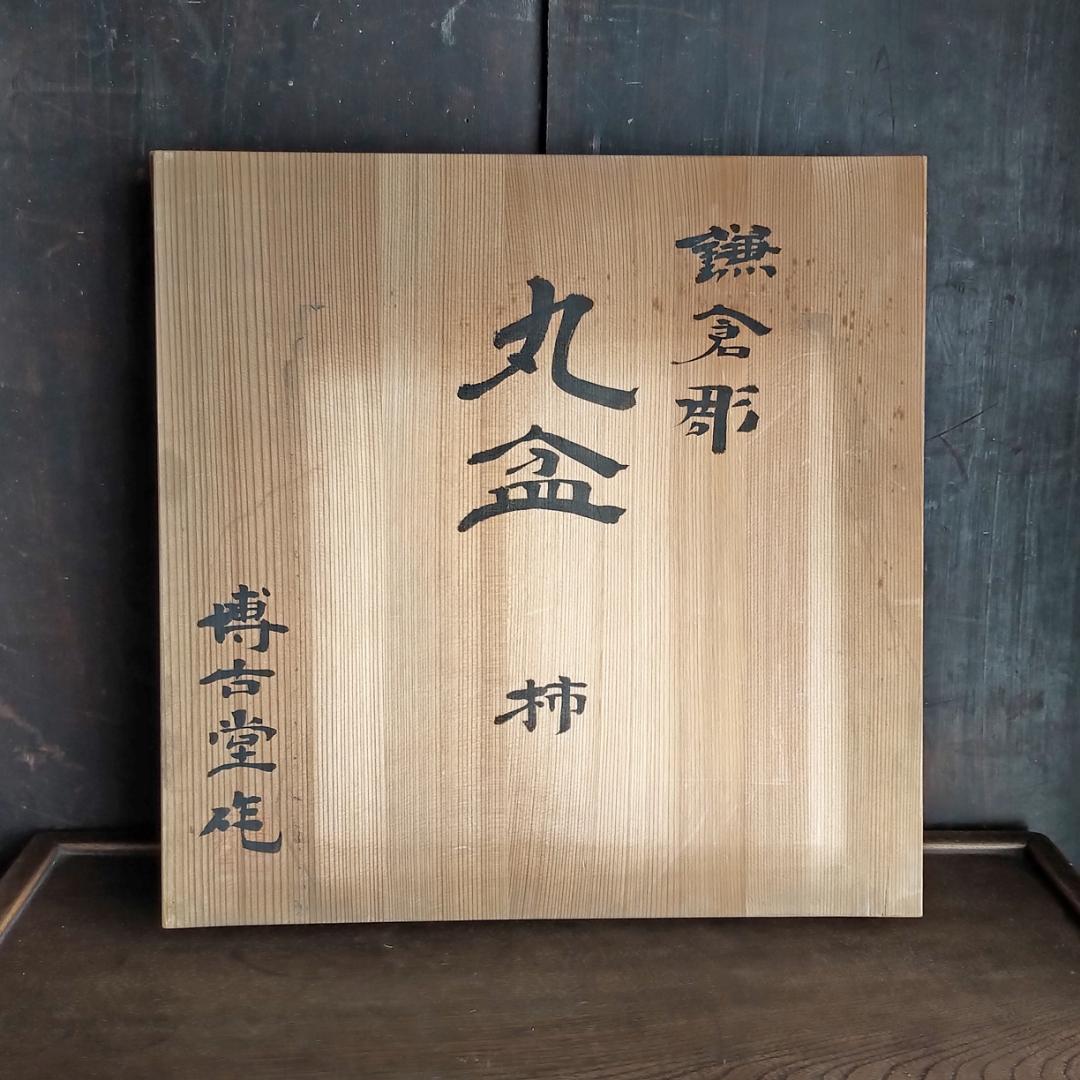 鎌倉彫
丸盆
柿
博古堂